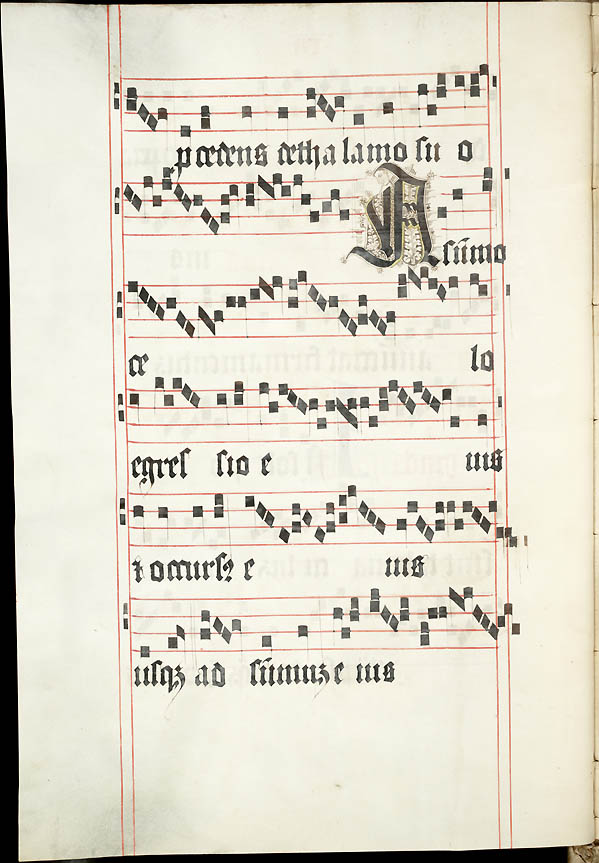 p cedens de tha lamo su o
A sūmo
ce lo
egres sio e ius
⁊ occursꝰ e ius
usqꝫ ad sūmuꝫ e ius